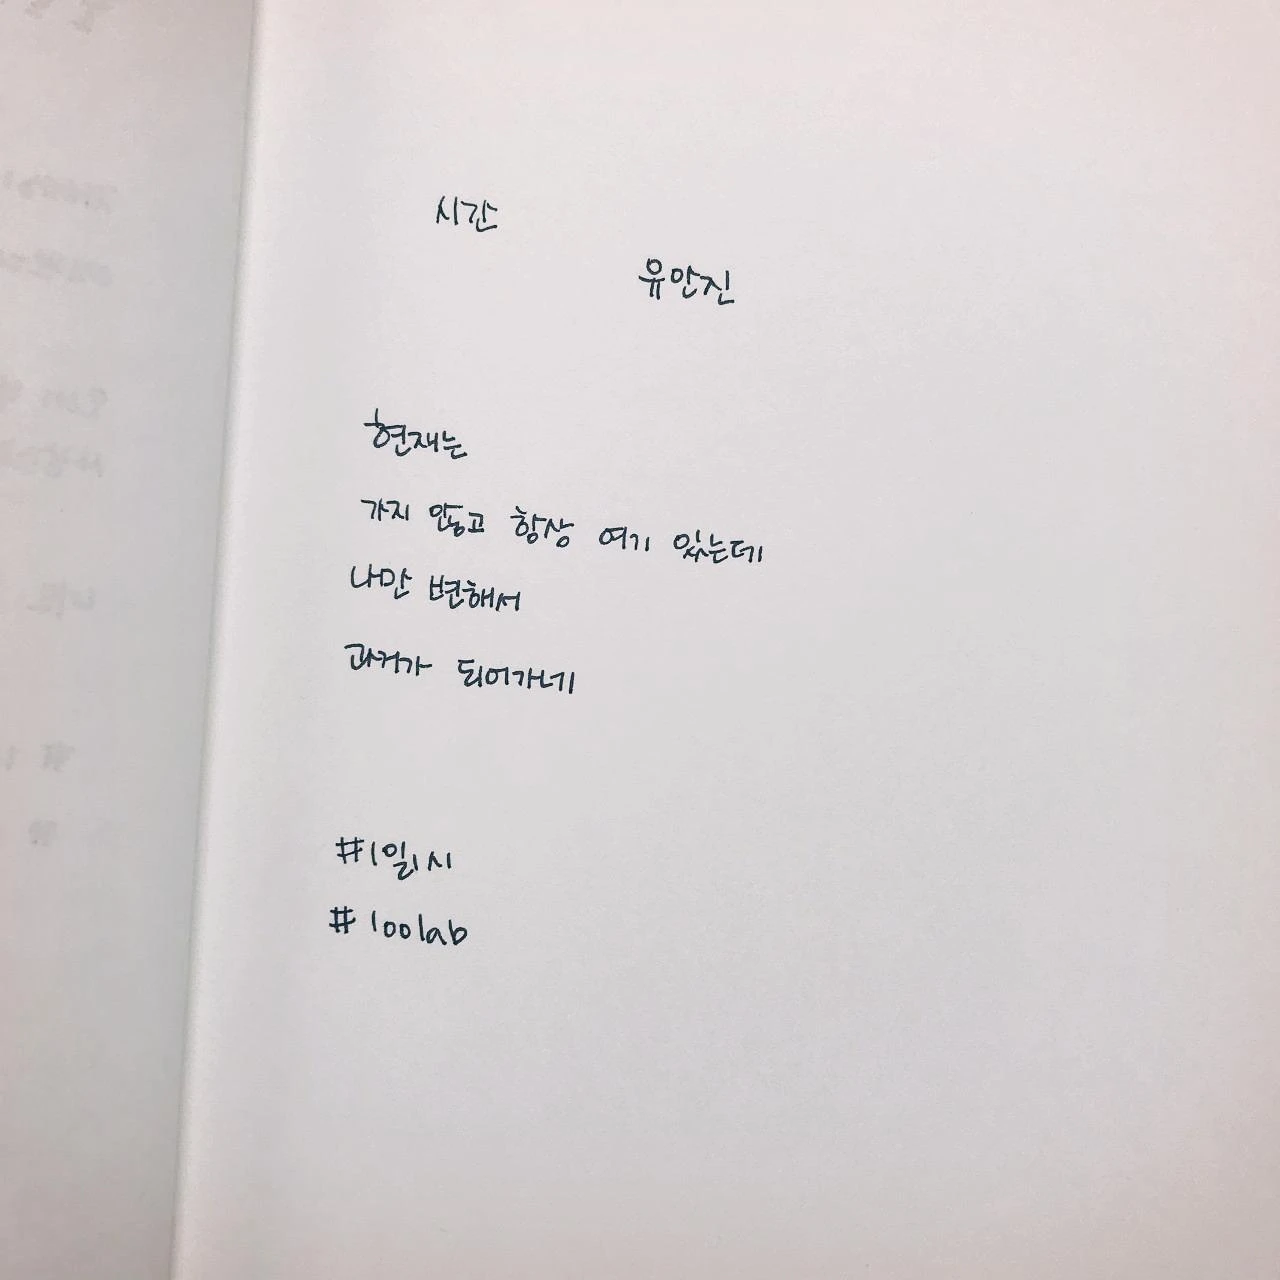 시간
유안진
현재는
가지 않고 항상 여기 있는데
나만 변해서
과거가 되어가네
#1일1시
#100lab